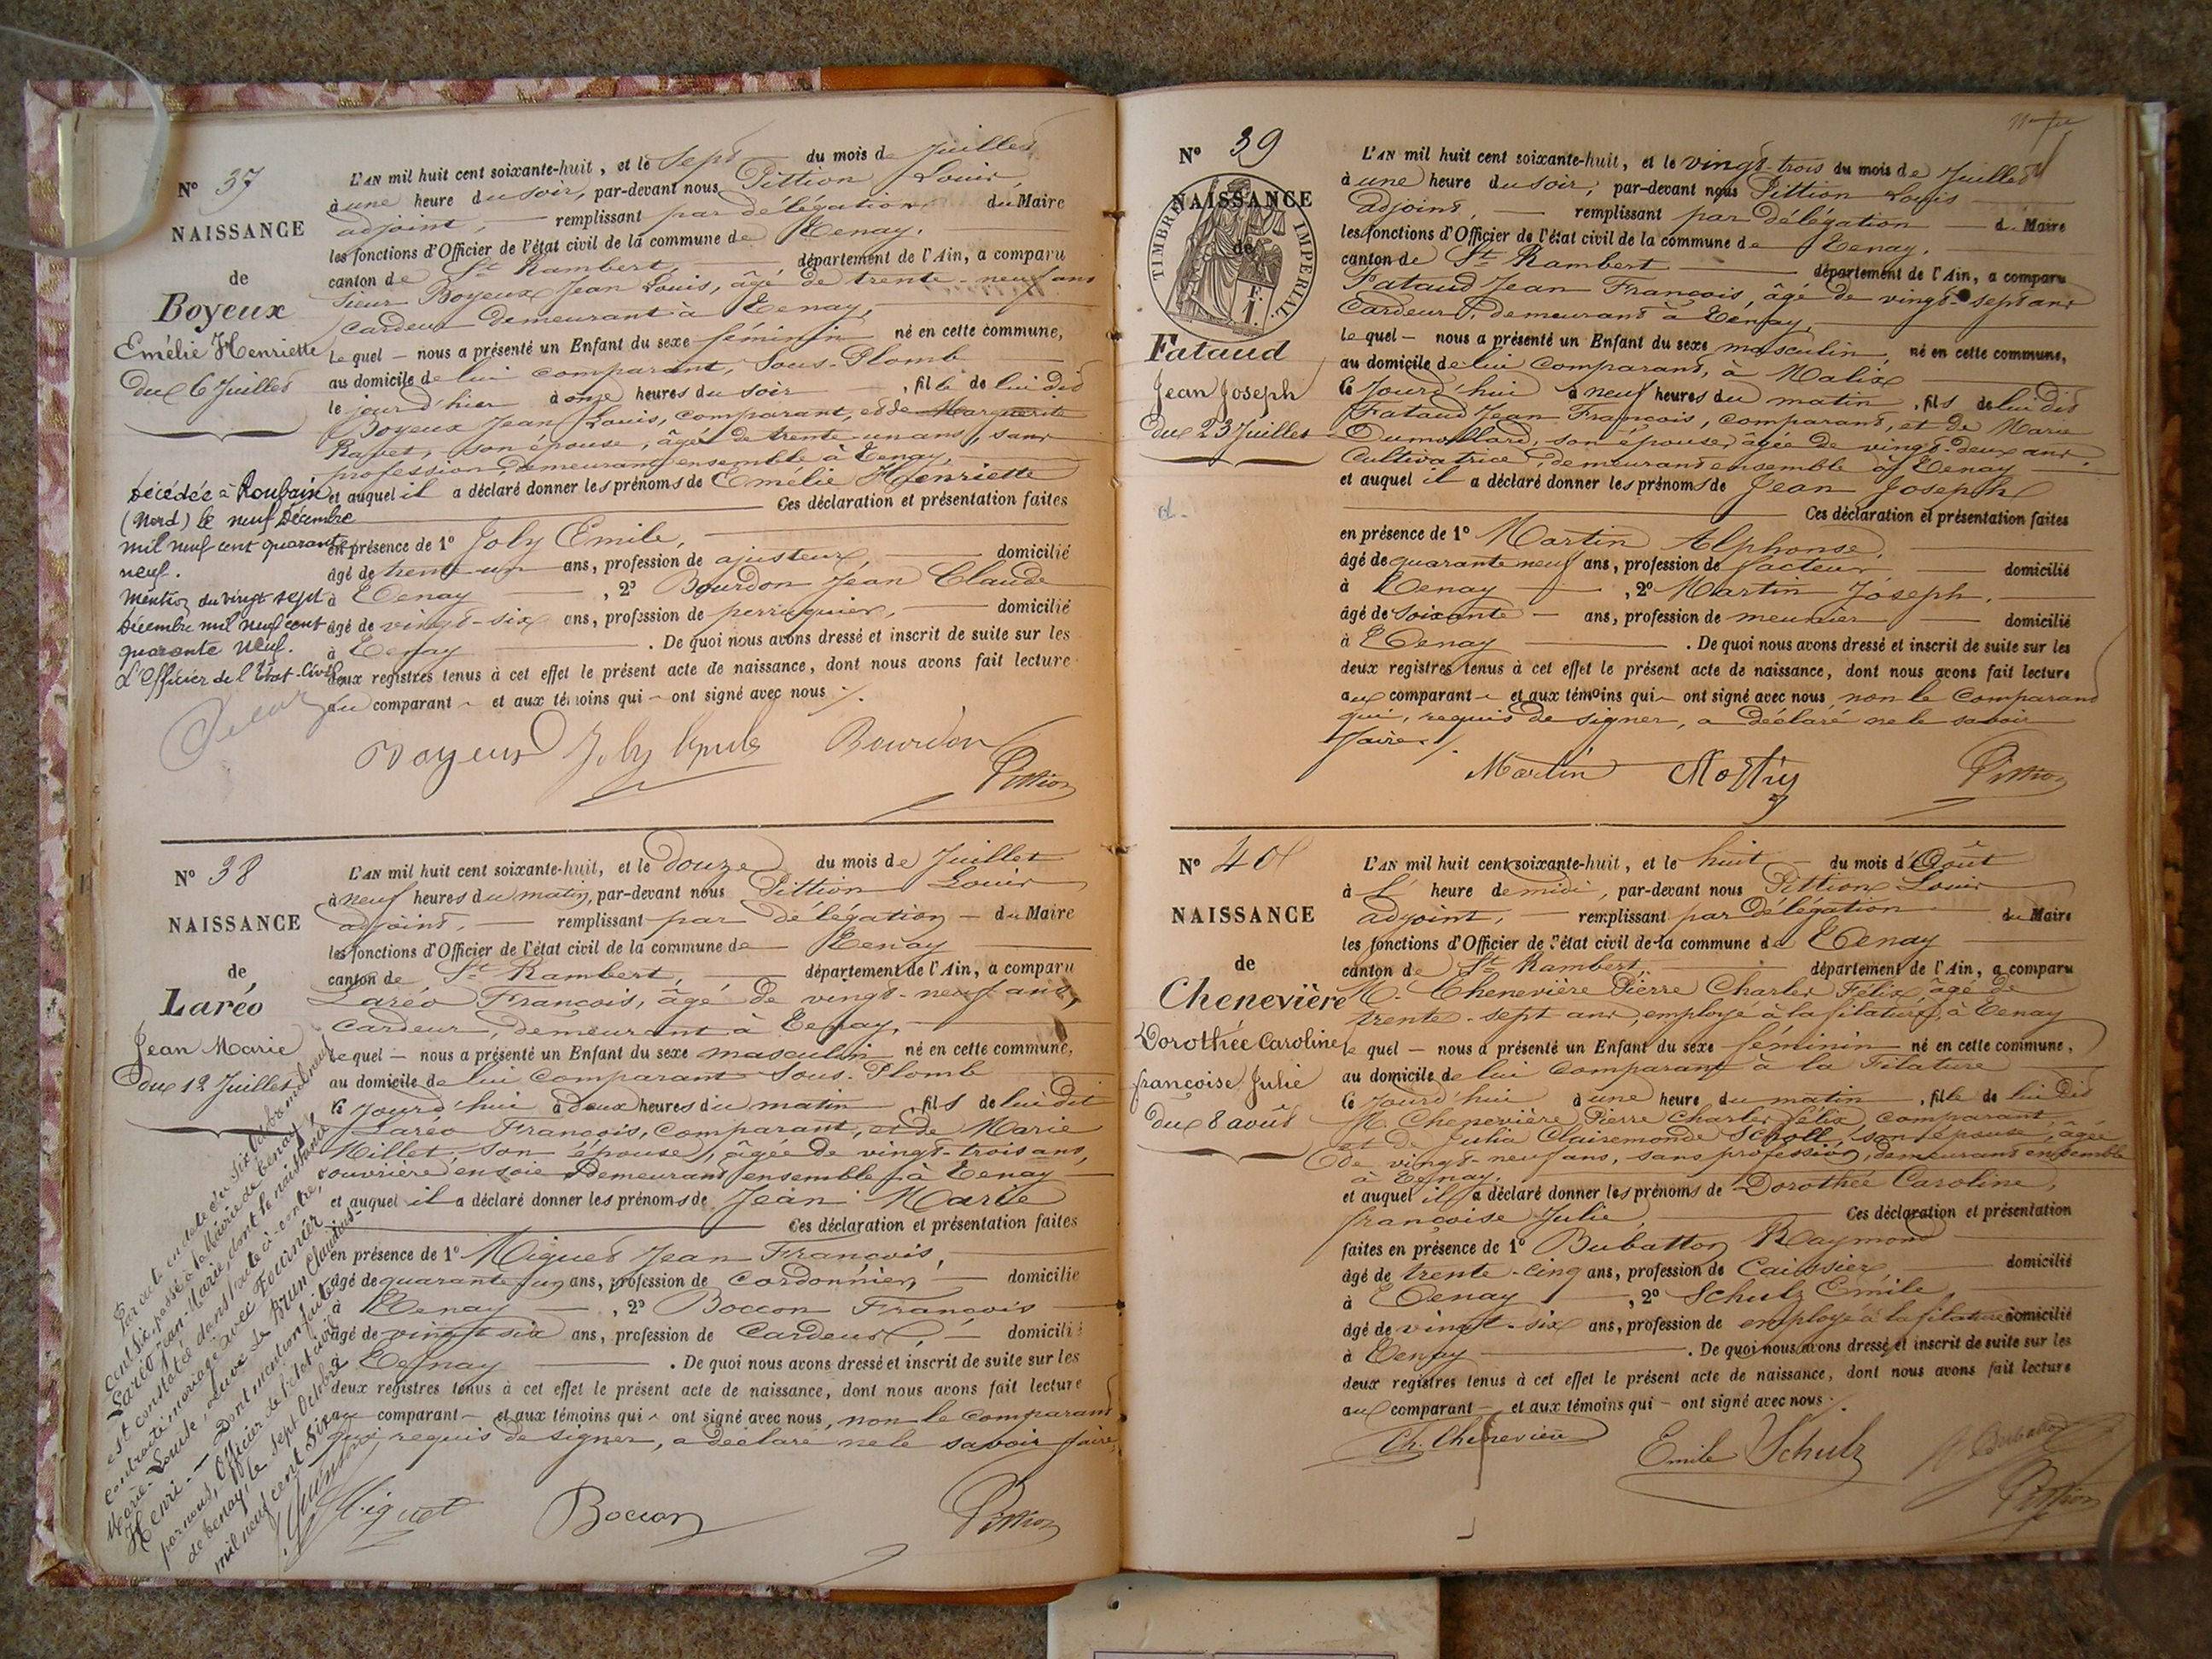 N° 37
NAISSANCE
de
Boyeux
Emélie Henriette
du 6 Juillet
L'AN mil huit cent soixante-huit, et le Sept du mois de Juillet
à une heure du soir, par-devant nous Pittion Louis,
adjoint, remplissant par délégation du Maire
les fonctions d'Officier de l'état civil de la commune de Tenay,
canton de St Rambert, département de l'Ain, a comparu
Sieur Boyeux Jean Louis, âgé de trente-neuf ans
Cardeur demeurant à Tenay,
le quel — nous a présenté un Enfant du sexe féminin né en cette commune,
au domicile de lui comparant, Sous-Plomb
le jour d'hier à onze heures du soir, fille de lui dit
Boyeux Jean Louis, comparant, et de Marguerite
Ravet, son épouse, âgée de trente-un ans, sans
profession demeurant ensemble à Tenay,
et auquel il a déclaré donner les prénoms de Emélie Henriette
Ces déclaration et présentation faites
en présence de 1° Joly Emile,
âgé de trente-un ans, profession de ajusteur domicilié
à Tenay, 2° Bourdon Jean Claude
âgé de vingt-six ans, profession de perruquier, domicilié
à Tenay. De quoi nous avons dressé et inscrit de suite sur les
deux registres tenus à cet effet le présent acte de naissance, dont nous avons fait lecture
au comparant et aux témoins qui ont signé avec nous
Décédée à Roubaix
(Nord) le neuf Décembre
mil neuf cent quarante
neuf.
Mention du vingt sept
Décembre mil neuf cent
quarante neuf.
L'Officier de l'Etat-Civil,
Boyeux Joly Emile Bourdon
Pittion
N° 38
NAISSANCE
de
Laréo
Jean Marie
du 12 Juillet
L'AN mil huit cent soixante-huit, et le Douze du mois de Juillet
à neuf heures du matin, par-devant nous Pittion Louis
adjoint, remplissant par délégation — du Maire
les fonctions d'Officier de l'état civil de la commune de Tenay
canton de St Rambert, département de l'Ain, a comparu
Laréo François, âgé de vingt-neuf ans,
Cardeur, demeurant à Tenay,
le quel — nous a présenté un Enfant du sexe masculin né en cette commune,
au domicile de lui comparant Sous-Plomb
le jourd'hui à deux heures du matin, fils de lui dit
Laréo François, comparant, et de Marie
Millet, son épouse, âgée de vingt-trois ans,
ouvrière en soie demeurant ensemble à Tenay
et auquel il a déclaré donner les prénoms de Jean Marie
Ces déclaration et présentation faites
en présence de 1° Miguet Jean François,
âgé de quarante-un ans, profession de Cordonnier, domicilié
à Tenay, 2° Boccon François
âgé de vingt six ans, profession de Cardeur, domicilié
à Tenay. De quoi nous avons dressé et inscrit de suite sur les
deux registres tenus à cet effet le présent acte de naissance, dont nous avons fait lecture
au comparant — et aux témoins qui ont signé avec nous, non le comparant
qui, requis de signer, a déclaré ne le savoir faire,
Par acte en date du Six Octobre mil neuf
cent Six, passé à la Mairie de Tenay
Laréo Jean-Marie, dont la naissance
est constatée dans l'acte ci-contre,
contracté mariage avec Fournier
Marie-Louise, veuve de Brun Claudius-
Henri. — Dont mention faite
par nous, Officier de l'état civil
de Tenay, le sept Octobre
mil neuf cent Six
Miguet Boccon Pittion
N° 39
NAISSANCE
de
TIMBRE IMPERIAL
F.
1.
Fataud
Jean Joseph
du 23 Juillet
L'AN mil huit cent soixante-huit, et le vingt-trois du mois de Juillet
à une heure du soir, par-devant nous Pittion Louis
adjoint, remplissant par délégation du Maire
les fonctions d'Officier de l'état civil de la commune de Tenay,
canton de St Rambert département de l'Ain, a comparu
Fataud Jean François, âgé de vingt-sept ans
Cardeur, demeurant à Tenay,
le quel — nous a présenté un Enfant du sexe masculin, né en cette commune,
au domicile de lui comparant, à Malix
le jourd'hui à neuf heures du matin, fils de lui dit
Fataud Jean François, comparant, et de Marie
Dumollard, son épouse, âgée de vingt-deux ans,
Cultivatrice, demeurant ensemble à Tenay
et auquel il a déclaré donner les prénoms de Jean Joseph
Ces déclaration et présentation faites
en présence de 1° Martin Alphonse,
âgé de quarante neuf ans, profession de facteur domicilié
à Tenay, 2° Martin Joseph,
âgé de soixante — ans, profession de meunier domicilié
à Tenay. De quoi nous avons dressé et inscrit de suite sur les
deux registres tenus à cet effet le présent acte de naissance, dont nous avons fait lecture
au comparant et aux témoins qui ont signé avec nous, non le comparant
qui, requis de signer, a déclaré ne le savoir
faire.
Martin Martin Pittion
N° 40
NAISSANCE
de
Chenevière
Dorothée Caroline
françoise Julie
du 8 août
L'AN mil huit cent soixante-huit, et le huit du mois d'Août
à l' heure de midi, par-devant nous Pittion Louis
adjoint, remplissant par délégation du Maire
les fonctions d'Officier de l'état civil de la commune de Tenay
canton de St Rambert, département de l'Ain, a comparu
M. Chenevière Pierre Charles Félix âgé de
trente-sept ans, employé à la filature, à Tenay
le quel — nous a présenté un Enfant du sexe féminin né en cette commune,
au domicile de lui comparant à la Filature
le jourd'hui à une heure du matin, fille de lui dit
M. Chenevière Pierre Charles Félix comparant,
et de Julia Clairemonde Scholl, son épouse, âgée
de vingt-neuf ans, sans profession, demeurant ensemble
à Tenay,
et auquel il a déclaré donner les prénoms de Dorothée Caroline,
françoise Julie, Ces déclaration et présentation
faites en présence de 1° Bubatton Raymond
âgé de trente-cinq ans, profession de Caissier domicilié
à Tenay, 2° Schulz Emile
âgé de vingt-six ans, profession de employé à la filature domicilié
à Tenay. De quoi nous avons dressé et inscrit de suite sur les
deux registres tenus à cet effet le présent acte de naissance, dont nous avons fait lecture
au comparant — et aux témoins qui — ont signé avec nous.
Ch. Chenevière Emile Schulz R Bubatton
Pittion